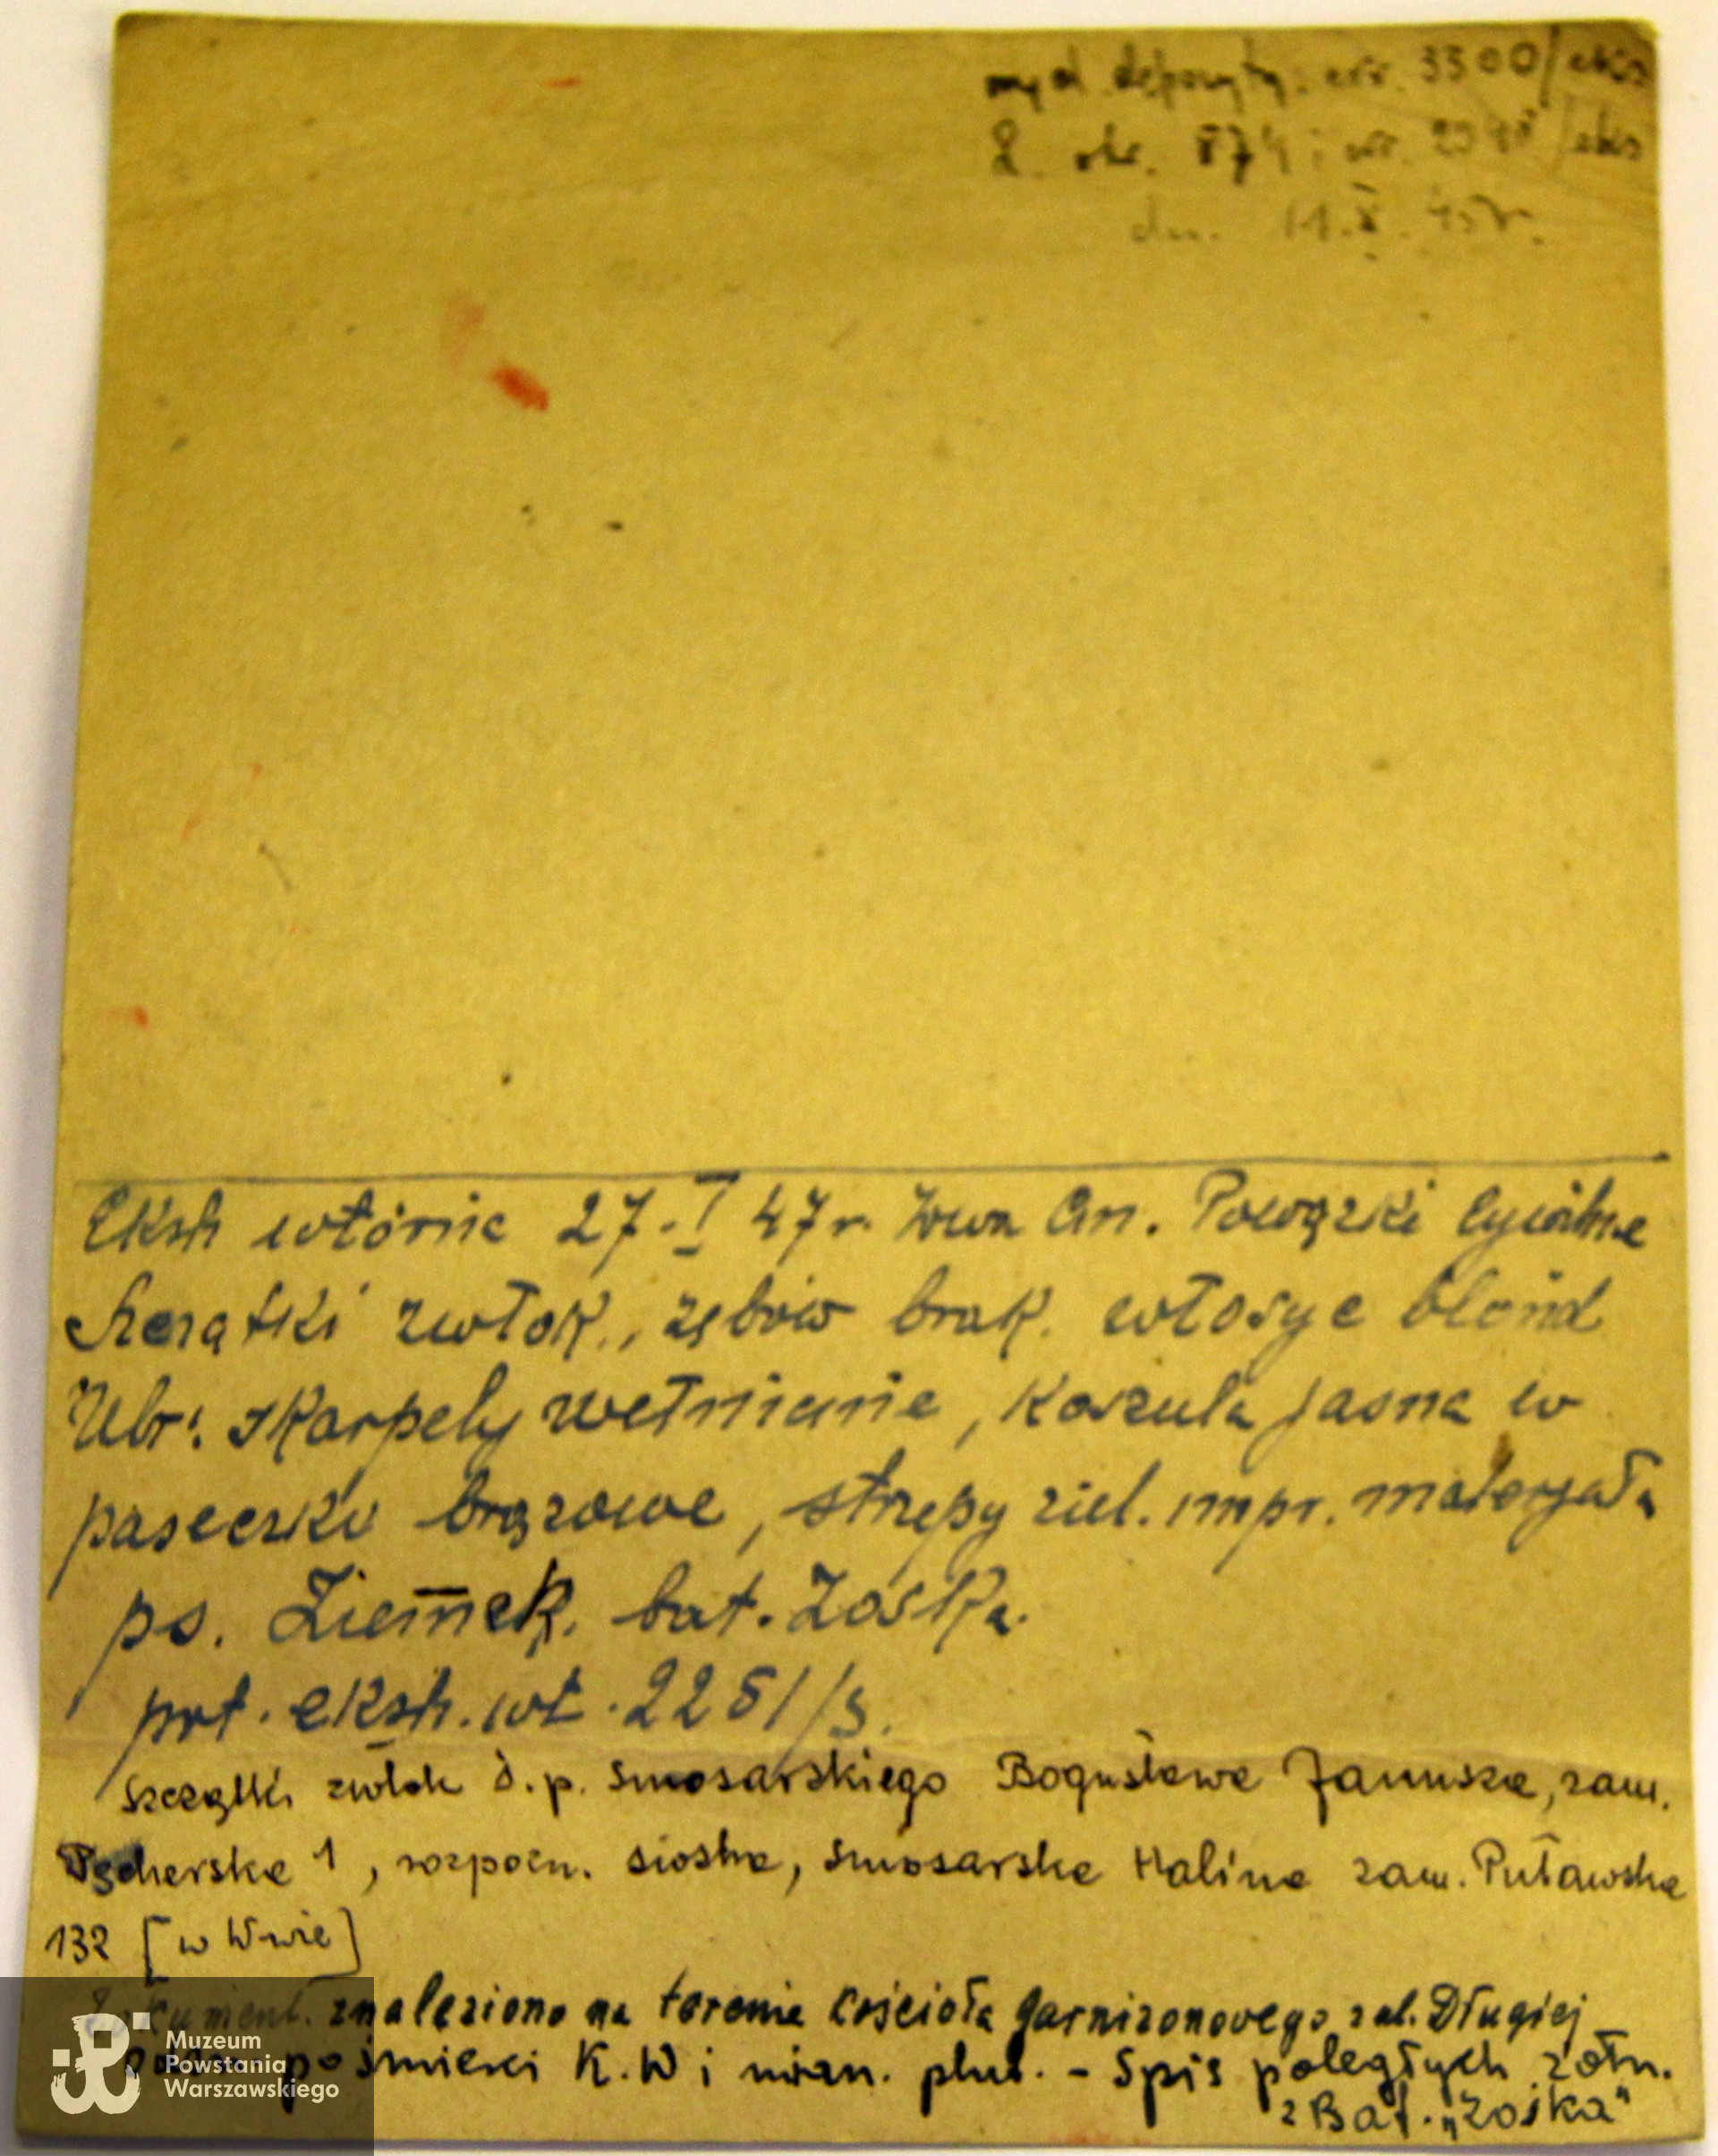 wyd. depozyty. nr. 3300/eks
2. str. 874 i nr. /eks
dn. 11.X.45r.
Eksh wtórne 27.I 47r. Wwa Cm. Powązki Cywilne
Szczątki zwłok, zębów brak. włosy blond
Ubr: skarpety wełniane, koszula jasna w
paseczki brązowe, strzępy ziel. impr. materjału
ps. Ziemek. bat. Zośka.
prt. eksh. wt. 2251/3.
Szczątki zwłok ś.p. Smosarskiego Bogusława Janusza, zam.
1, rozpozn. siostra, Smosarska Halina zam. Puławska
132 [w Wwie]
Dokument. znaleziono na terenie Kościoła Garnizonowego z ul. Długiej
pośmierci K.W i mian. plut. - Spis poległych żołn.
z Bat. „Zośka"
Muzeum
Powstania
Warszawskiego